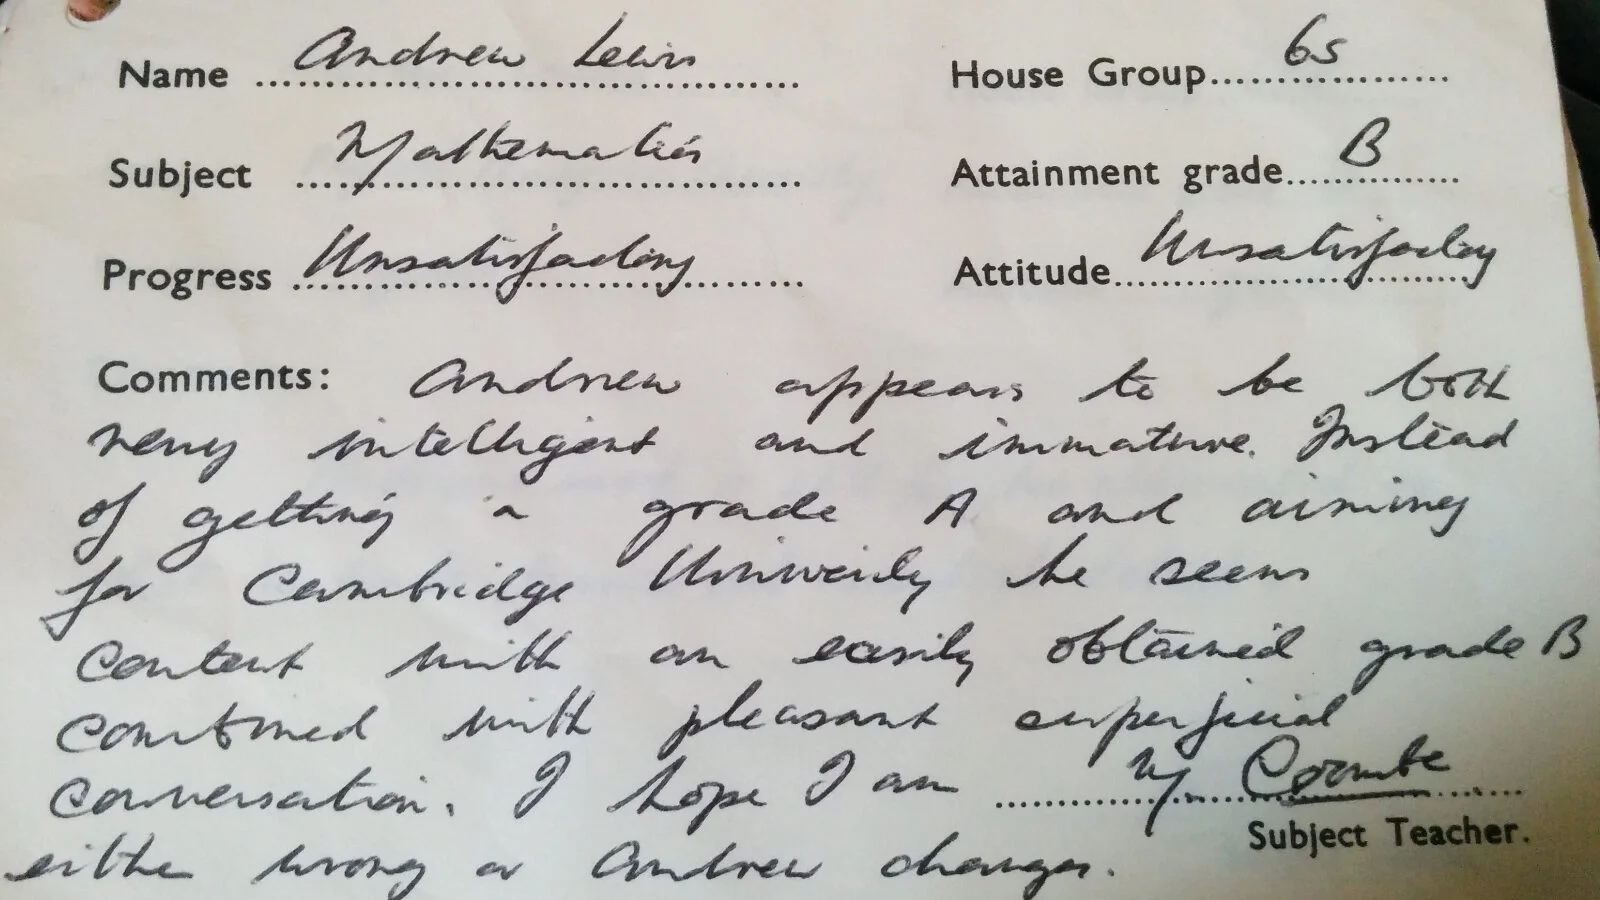 Name Andrew Lewis House Group 6S
Subject Mathematics Attainment grade B
Progress Unsatisfactory Attitude Unsatisfactory
Comments: Andrew appears to be both
very intelligent and immature. Instead
of getting a grade A and aiming
for Cambridge University he seems
content with an easily obtained grade B
combined with pleasant superficial
conversation. I hope I am M Coombe
Subject Teacher.
either wrong or Andrew changes.